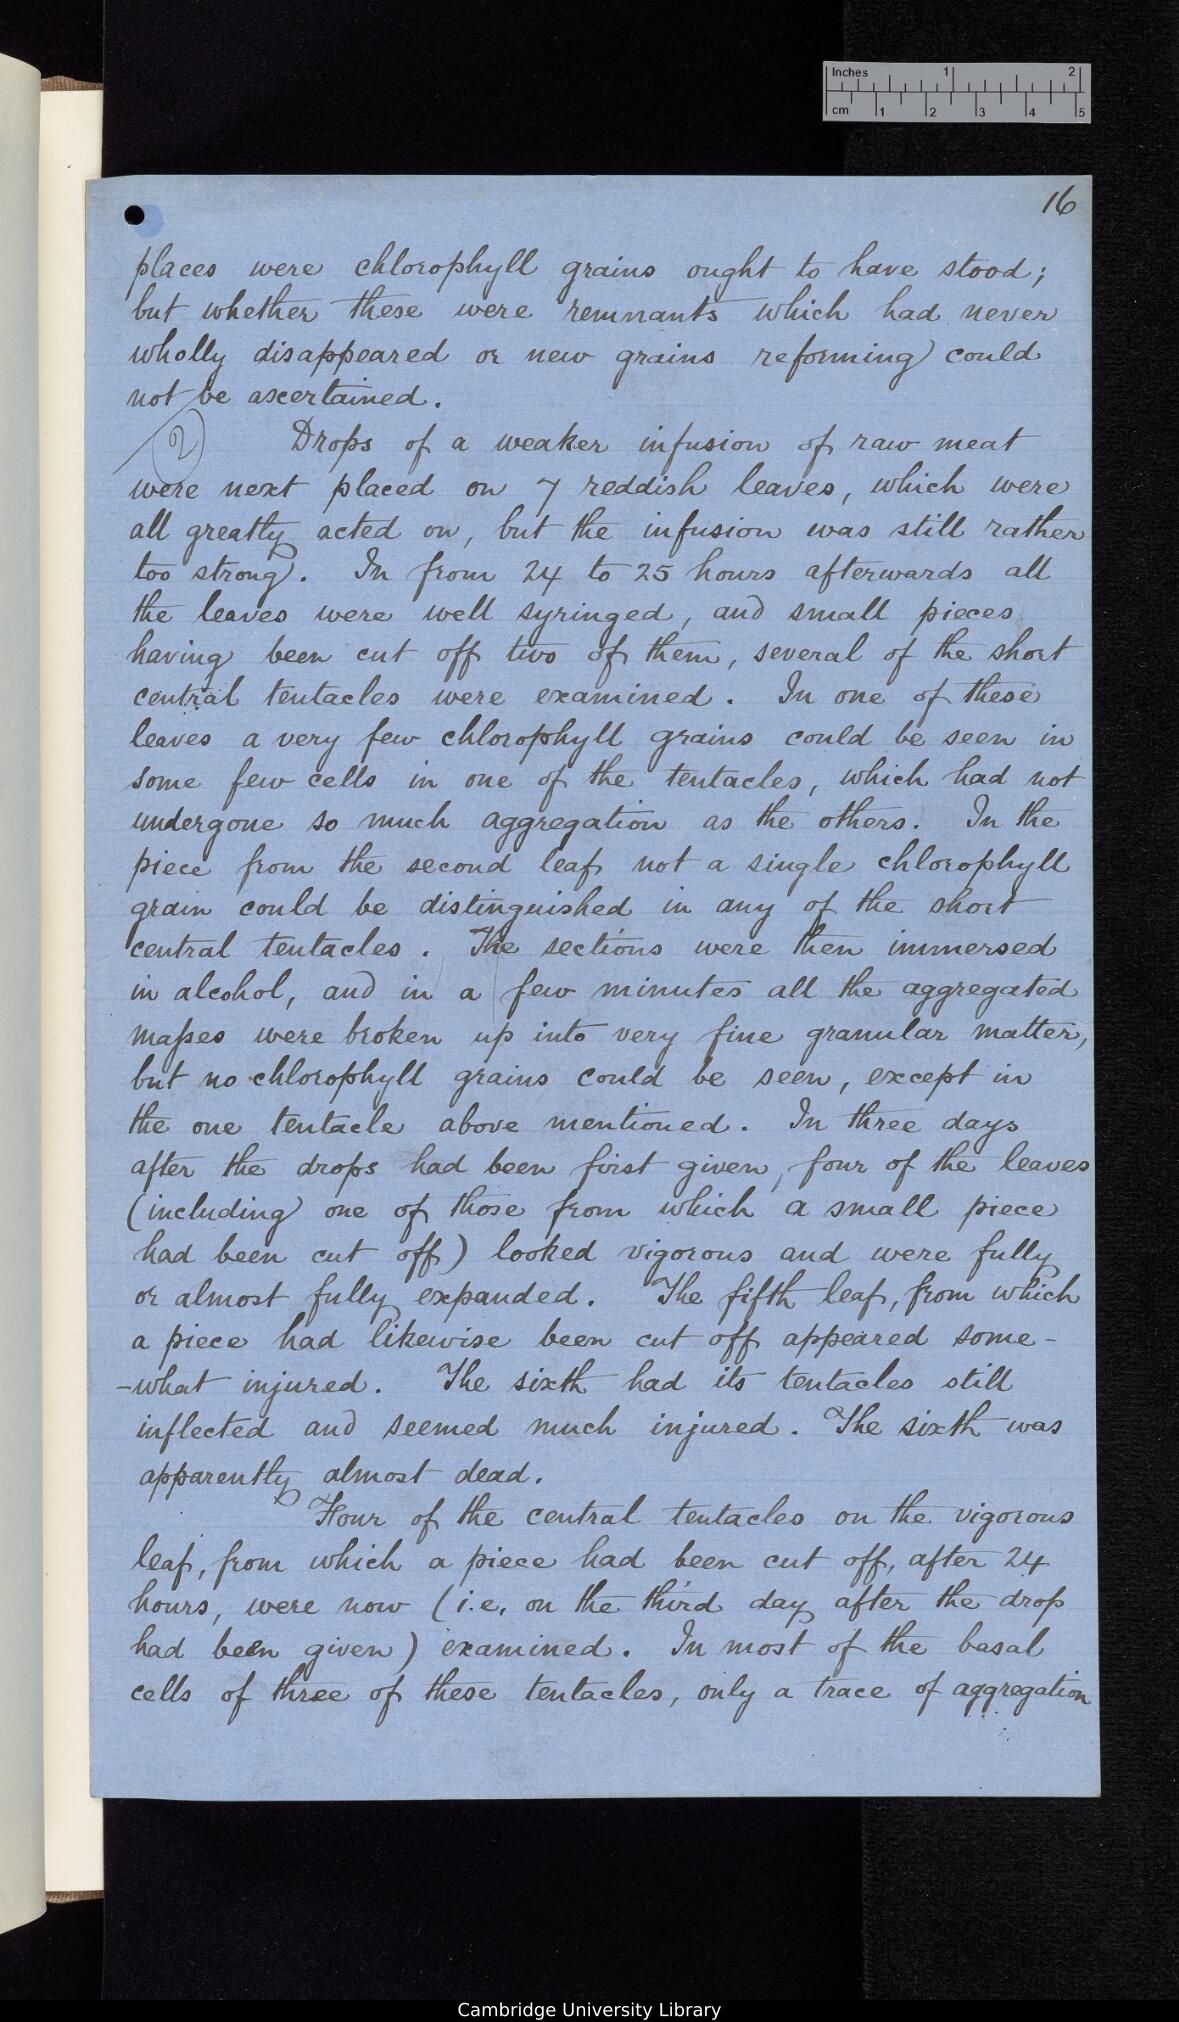 Inches 1 2
cm 1 2 3 4 5
16
places were chlorophyll grains ought to have stood;
but whether these were remnants which had never
wholly disappeared or new grains reforming could
not be ascertained.
2
Drops of a weaker infusion of raw meat
were next placed on 7 reddish leaves, which were
all greatly acted on, but the infusion was still rather
too strong. In from 24 to 25 hours afterwards all
the leaves were well syringed, and small pieces
having been cut off two of them, several of the short
central tentacles were examined. In one of these
leaves a very few chlorophyll grains could be seen in
some few cells in one of the tentacles, which had not
undergone so much aggregation as the others. In the
piece from the second leaf not a single chlorophyll
grain could be distinguished in any of the short
central tentacles. The sections were then immersed
in alcohol, and in a few minutes all the aggregated
maſses were broken up into very fine granular matter,
but no chlorophyll grains could be seen, except in
the one tentacle above mentioned. In three days
after the drops had been first given, four of the leaves
(including one of those from which a small piece
had been cut off) looked vigorous and were fully
or almost fully expanded. The fifth leaf, from which
a piece had likewise been cut off appeared some-
-what injured. The sixth had its tentacles still
inflected and seemed much injured. The sixth was
apparently almost dead.
Four of the central tentacles on the vigorous
leaf, from which a piece had been cut off, after 24
hours, were now (i.e. on the third day after the drop
had been given) examined. In most of the basal
cells of three of these tentacles, only a trace of aggregation
Cambridge University Library